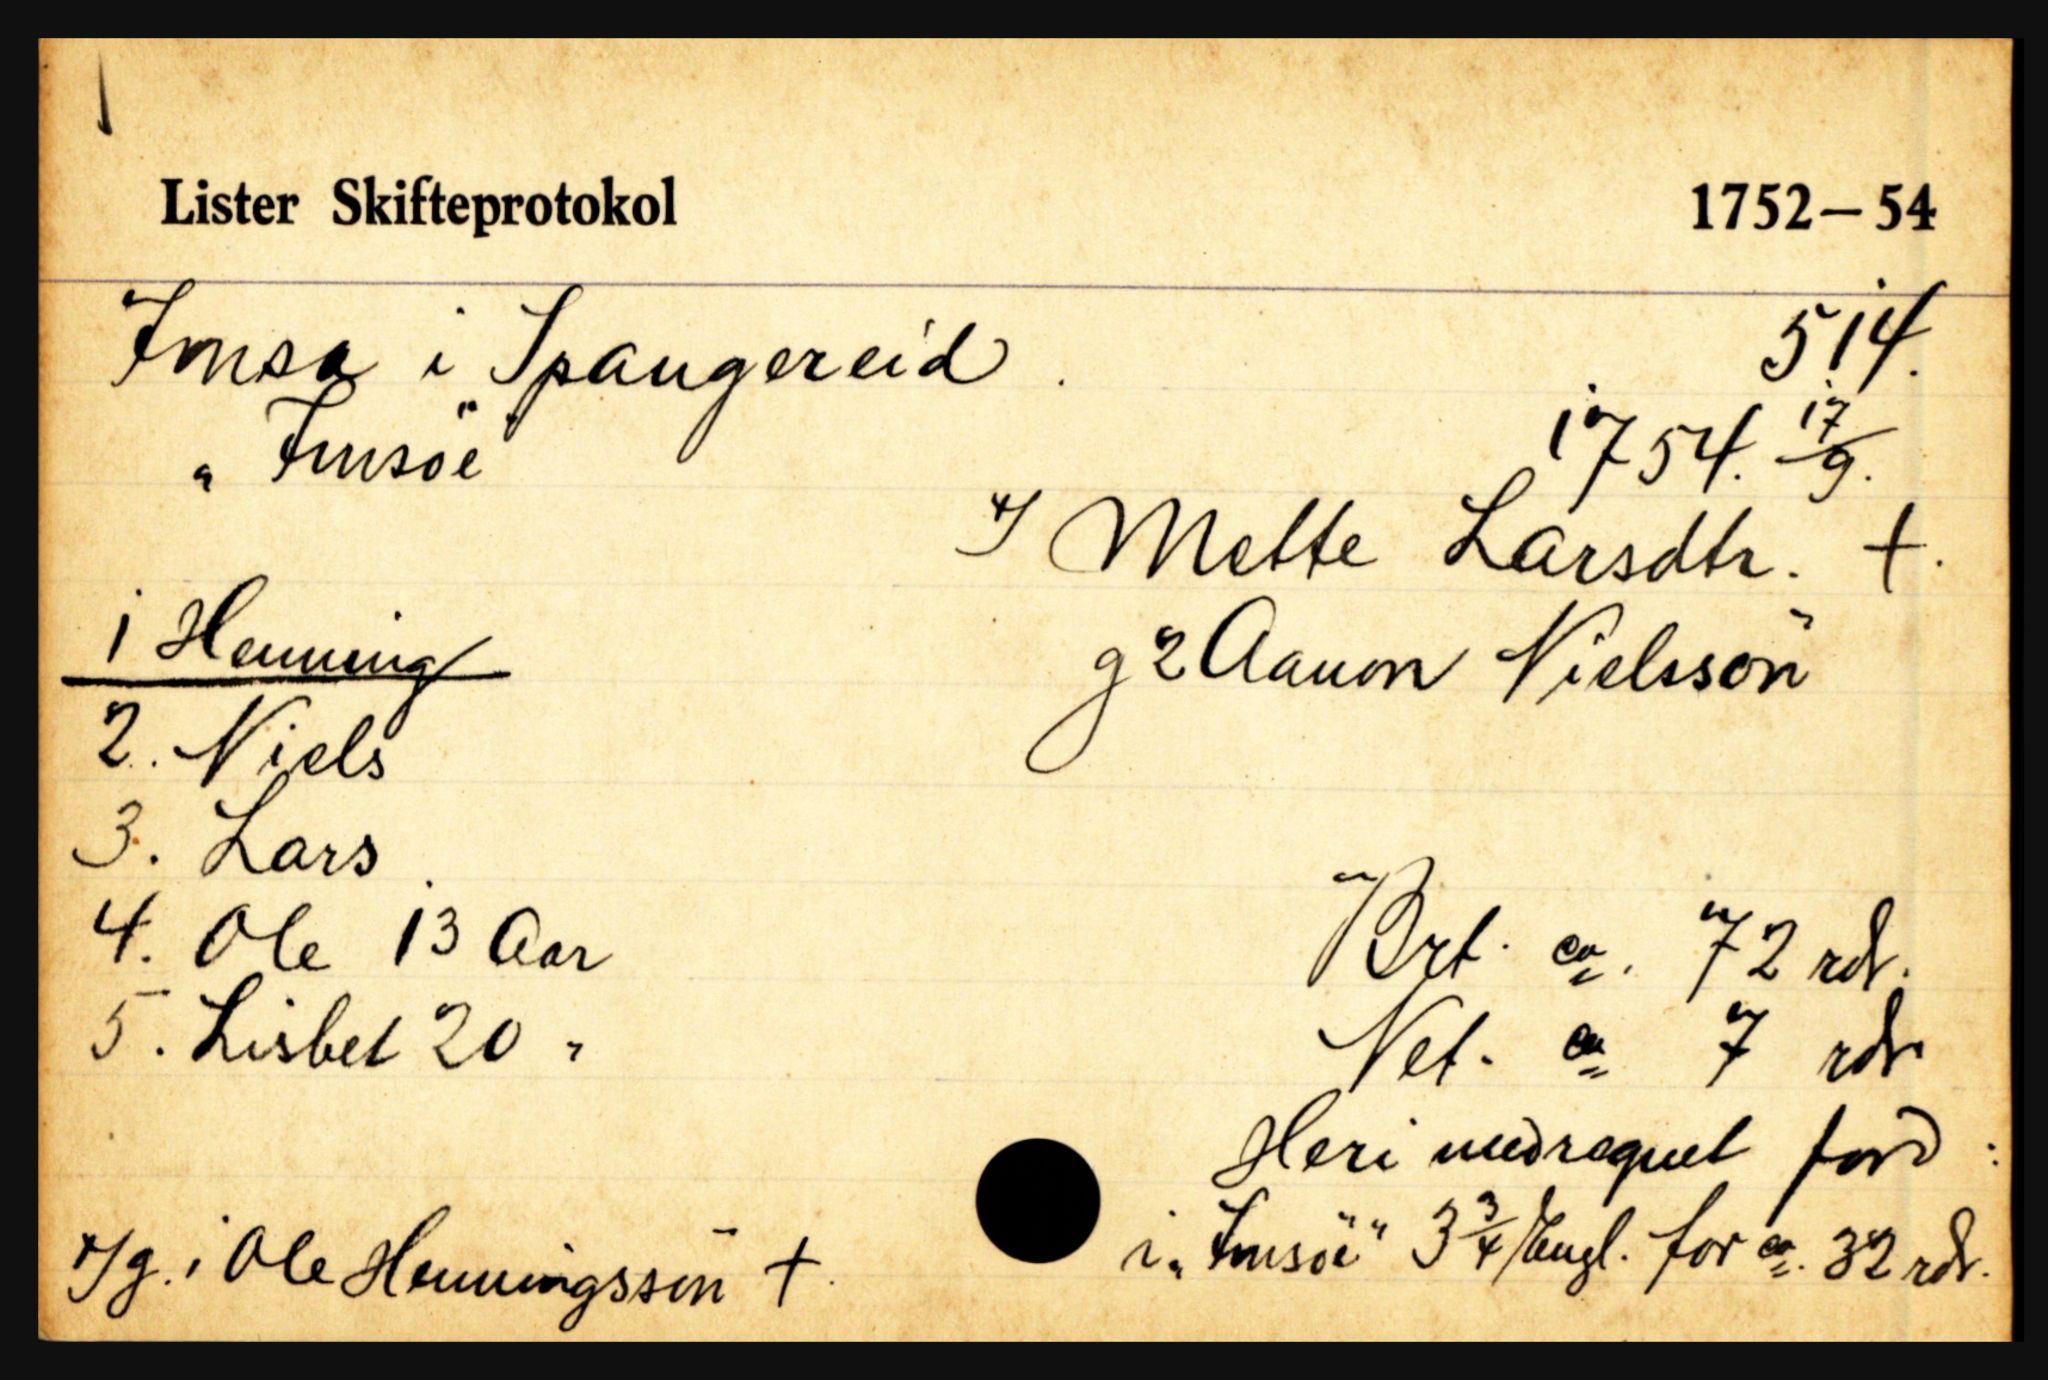 Lister Skifteprotokol 1752–54
Imsa i Spangereid. 514.
„ Imsöe" 1754. 17/9.
Mette Larsdtr. †.
1 Henning g 2 Aanon Nielssön
2. Niels
3. Lars
4. Ole 13 Aar Brt. ca. 72 rdr.
5. Lisbet 20 " Net. ca 7 rdr
Heri medregnet jord:
g. 1 Ole Henningssön † i „Imsöe" 3 3/4 Engl. for ca. 32 rdr.